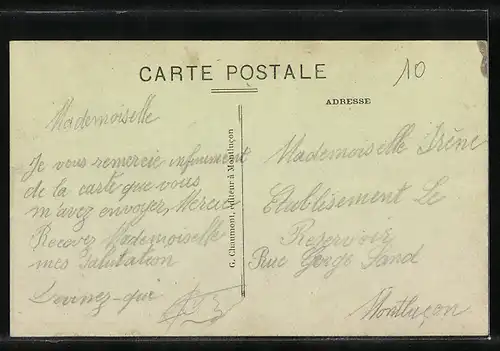 CARTE POSTALE
10
ADRESSE
Mademoiselle
Je vous remercie infiniment
de la carte que vous
m'avez envoyer, Mercie
Recevez Mademoiselle
mes Salutation
Devinez-qui
G. Chaumont, éditeur à Montluçon
Mademoiselle Irène
Etablisement Le
Reservoir
Rue Gorge Sand
Montluçon